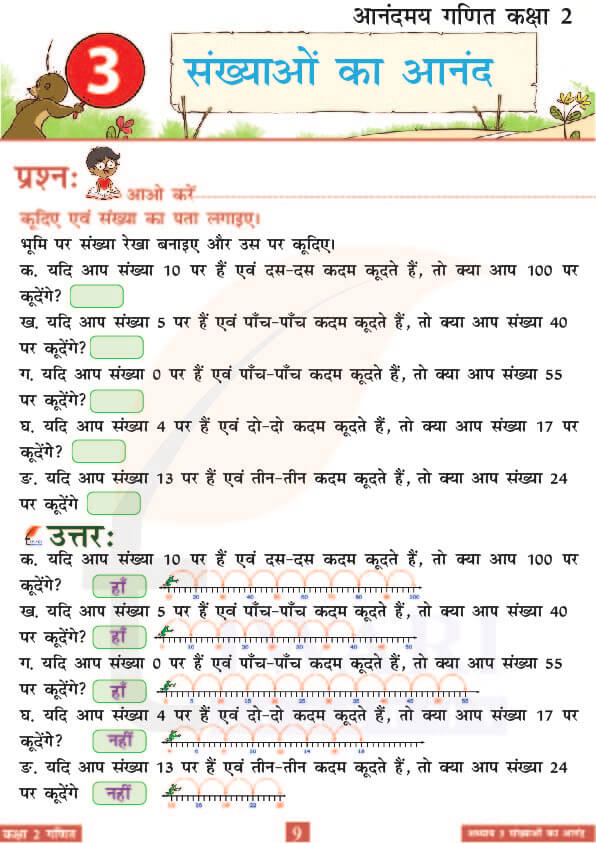 आनंदमय गणित कक्षा 2
3
संख्याओं का आनंद
प्रश्न:
आओ करें
कूदिए एवं संख्या का पता लगाइए।
भूमि पर संख्या रेखा बनाइए और उस पर कूदिए।
क. यदि आप संख्या 10 पर हैं एवं दस-दस कदम कूदते हैं, तो क्या आप 100 पर
कूदेंगे?
ख. यदि आप संख्या 5 पर हैं एवं पाँच-पाँच कदम कूदते हैं, तो क्या आप संख्या 40
पर कूदेंगे?
ग. यदि आप संख्या 0 पर हैं एवं पाँच-पाँच कदम कूदते हैं, तो क्या आप संख्या 55
पर कूदेंगे?
घ. यदि आप संख्या 4 पर हैं एवं दो-दो कदम कूदते हैं, तो क्या आप संख्या 17 पर
कूदेंगे?
ङ. यदि आप संख्या 13 पर हैं एवं तीन-तीन कदम कूदते हैं, तो क्या आप संख्या 24
पर कूदेंगे
उत्तर:
क. यदि आप संख्या 10 पर हैं एवं दस-दस कदम कूदते हैं, तो क्या आप 100 पर
कूदेंगे? हाँ
ख. यदि आप संख्या 5 पर हैं एवं पाँच-पाँच कदम कूदते हैं, तो क्या आप संख्या 40
पर कूदेंगे? हाँ
ग. यदि आप संख्या 0 पर हैं एवं पाँच-पाँच कदम कूदते हैं, तो क्या आप संख्या 55
पर कूदेंगे? हाँ
घ. यदि आप संख्या 4 पर हैं एवं दो-दो कदम कूदते हैं, तो क्या आप संख्या 17 पर
कूदेंगे? नहीं
ङ. यदि आप संख्या 13 पर हैं एवं तीन-तीन कदम कूदते हैं, तो क्या आप संख्या 24
पर कूदेंगे नहीं
कक्षा 2 गणित 9 अध्याय 3 संख्याओं का आनंद